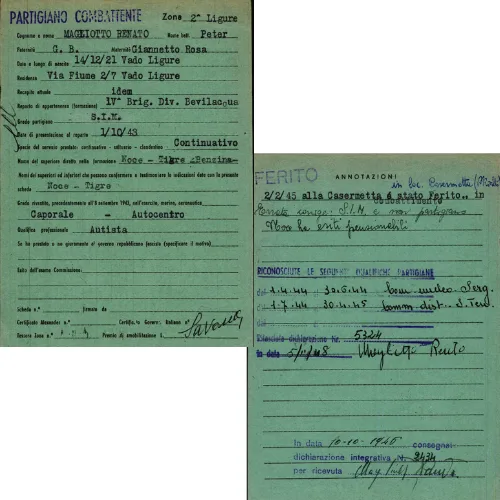 PARTIGIANO COMBATTENTE Zona 2ª Ligure
Cognome e nome MAGLIOTTO RENATO Nome batt. Peter
Paternità G. B. Maternità Giannetto Rosa
Data e luogo di nascita 14/12/21 Vado Ligure
Residenza Via Fiume 2/7 Vado Ligure
Recapito attuale idem
Reparto di appartenenza (formazione) IVª Brig. Div. Bevilacqua
Grado partigiano S.I.M.
Data di presentazione al reparto 1/10/43
Specie del servizio prestato: continuativo - saltuario - clandestino Continuativo
Nome del superiore diretto nella formazione Noce - Tigre - Benzina-
Nomi dei superiori od inferiori che possono confermare o testimoniare le indicazioni date con la presente
scheda Noce - Tigre
Grado rivestito, precedentemente all'8 settembre 1943, nell'esercito, marina, aeronautica
Caporale - Autocentro
Qualifica professionale Autista
Se ha prestato o no giuramento al governo repubblicano fascista (specificare il motivo)
Esito dell'esame Commissione
Scheda n. firmata da
Certificato Alexander n. Certific. Governo Italiano n.
Tessera Zona n. Premio di smobilitazione L. Savona
FERITO ANNOTAZIONI
in loc. Casermetta
2/2/45 alla Casermetta è stato Ferito.. in
Combattimento
Errata corrige: S.I.M. e non partigiano
Non ha esiti pensionabili
RICONOSCIUTE LE SEGUENTI QUALIFICHE PARTIGIANE
dal 1.4.44 30.6.44 Com. nucleo Serg.
dal 1.7.44 30.4.45 Comm. dist. S. Ten.
dal
Rilasciata dichiarazione Nr. 5324
in data 5/11/48 Magliotto Renato
In data 10-10-1946 consegnai
dichiarazione integrativa N. 2434
per ricevuta